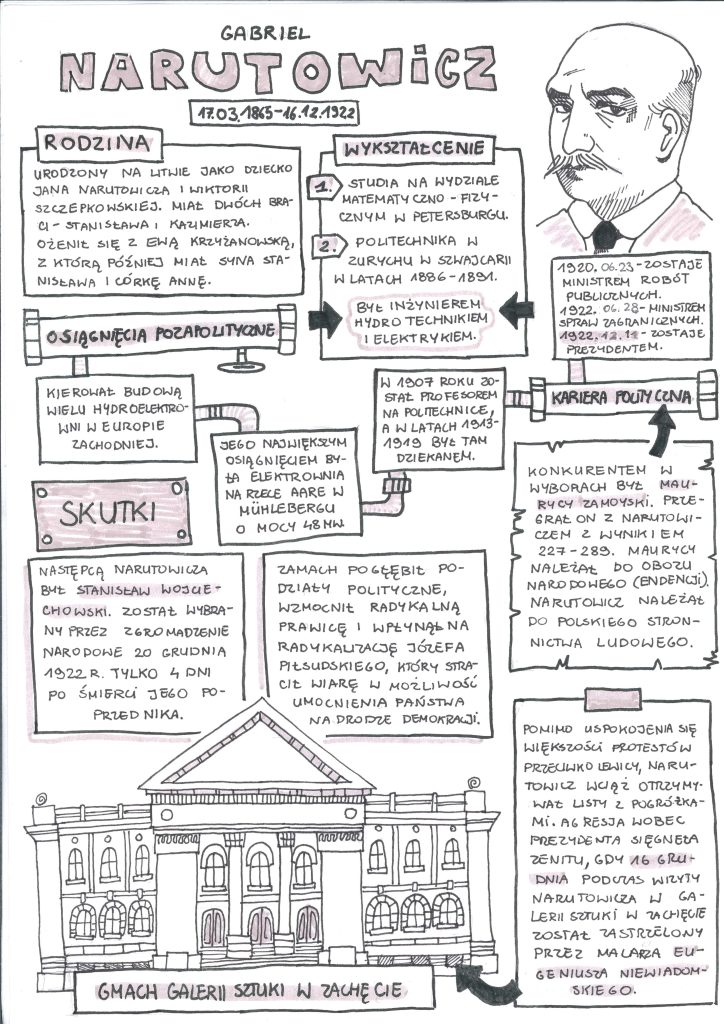 GABRIEL
NARUTOWICZ
17.03.1865-16.12.1922
RODZINA
URODZONY NA LITWIE JAKO DZIECKO
JANA NARUTOWICZA I WIKTORII
SZCZEPKOWSKIEJ. MIAŁ DWÓCH BRA-
CI - STANISŁAWA I KAZIMIERZA.
OŻENIŁ SIĘ Z EWĄ KRZYŻANOWSKĄ,
Z KTÓRĄ PÓŹNIEJ MIAŁ SYNA STA-
NISŁAWA I CÓRKĘ ANNĘ.
WYKSZTAŁCENIE
1. STUDIA NA WYDZIALE
MATEMATYCZNO - FIZY-
CZNYM W PETERSBURGU.
2. POLITECHNIKA W
ZURYCHU W SZWAJCARII
W LATACH 1886-1891.
BYŁ INŻYNIEREM
HYDROTECHNIKIEM
I ELEKTRYKIEM.
1920.06.23-ZOSTAJE
MINISTREM ROBÓT
PUBLICZNYCH.
1922.06.28-MINISTREM
SPRAW ZAGRANICZNYCH.
1922.12.11-ZOSTAJE
PREZYDENTEM.
OSIĄGNIĘCIA POZAPOLITYCZNE
KIEROWAŁ BUDOWĄ
WIELU HYDROELEKTRO-
WNI W EUROPIE
ZACHODNIEJ.
JEGO NAJWIĘKSZYM
OSIĄGNIĘCIEM BY-
ŁA ELEKTROWNIA
NA RZECE AARE W
MÜHLEBERGU
O MOCY 48 MW.
W 1907 ROKU ZO-
STAŁ PROFESOREM
NA POLITECHNICE,
A W LATACH 1913-
1919 BYŁ TAM
DZIEKANEM.
KARIERA POLITYCZNA
KONKURENTEM W
WYBORACH BYŁ MAU-
RYCY ZAMOYSKI. PRZE-
GRAŁ ON Z NARUTOWI-
CZEM Z WYNIKIEM
227-289. MAURYCY
NALEŻAŁ DO OBOZU
NARODOWEGO (ENDENCJI).
NARUTOWICZ NALEŻAŁ
DO POLSKIEGO STRON-
NICTWA LUDOWEGO.
SKUTKI
NASTĘPCĄ NARUTOWICZA
BYŁ STANISŁAW WOJCIE-
CHOWSKI. ZOSTAŁ WYBRA-
NY PRZEZ ZGROMADZENIE
NARODOWE 20 GRUDNIA
1922 R. TYLKO 4 DNI
PO ŚMIERCI JEGO PO-
PRZEDNIKA.
ZAMACH POGŁĘBIŁ PO-
DZIAŁY POLITYCZNE,
WZMOCNIŁ RADYKALNĄ
PRAWICĘ I WPŁYNĄŁ NA
RADYKALIZACJĘ JÓZEFA
PIŁSUDSKIEGO, KTÓRY STRA-
CIŁ WIARĘ W MOŻLIWOŚĆ
UMOCNIENIA PAŃSTWA
NA DRODZE DEMOKRACJI.
POMIMO USPOKOJENIA SIĘ
WIĘKSZOŚCI PROTESTÓW
PRZECIWKO LEWICY, NARU-
TOWICZ WCIĄŻ OTRZYMY-
WAŁ LISTY Z POGRÓŻKA-
MI. AGRESJA WOBEC
PREZYDENTA SIĘGNĘŁA
ZENITU, GDY 16 GRU-
DNIA PODCZAS WIZYTY
NARUTOWICZA W GA-
LERII SZTUKI W ZACHĘCIE
ZOSTAŁ ZASTRZELONY
PRZEZ MALARZA EU-
GENIUSZA NIEWIADOM-
SKIEGO.
GMACH GALERII SZTUKI W ZACHĘCIE